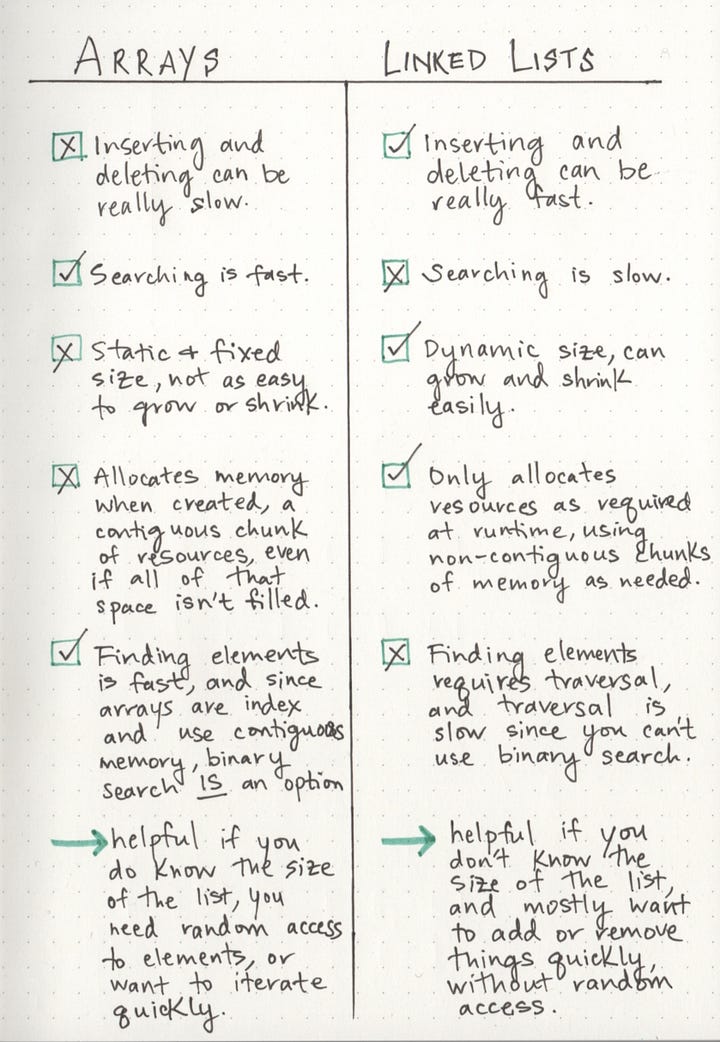 ARRAYS
Inserting and
deleting can be
really slow.
Searching is fast.
Static & fixed
size, not as easy
to grow or shrink.
Allocates memory
when created, a
contiguous chunk
of resources, even
if all of that
space isn't filled.
Finding elements
is fast, and since
arrays are index
and use contiguous
memory, binary
search IS an option
→ helpful if you
do know the size
of the list, you
need random access
to elements, or
want to iterate
quickly.
LINKED LISTS
Inserting and
deleting can be
really fast.
Searching is slow.
Dynamic size, can
grow and shrink
easily.
Only allocates
resources as required
at runtime, using
non-contiguous chunks
of memory as needed.
Finding elements
requires traversal,
and traversal is
slow since you can't
use binary search.
→ helpful if you
don't know the
size of the list,
and mostly want
to add or remove
things quickly,
without random
access.